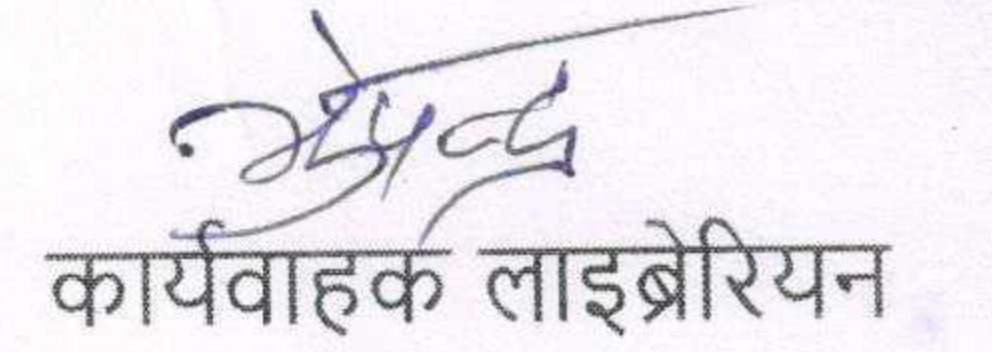 कार्यवाहक लाइब्रेरियन